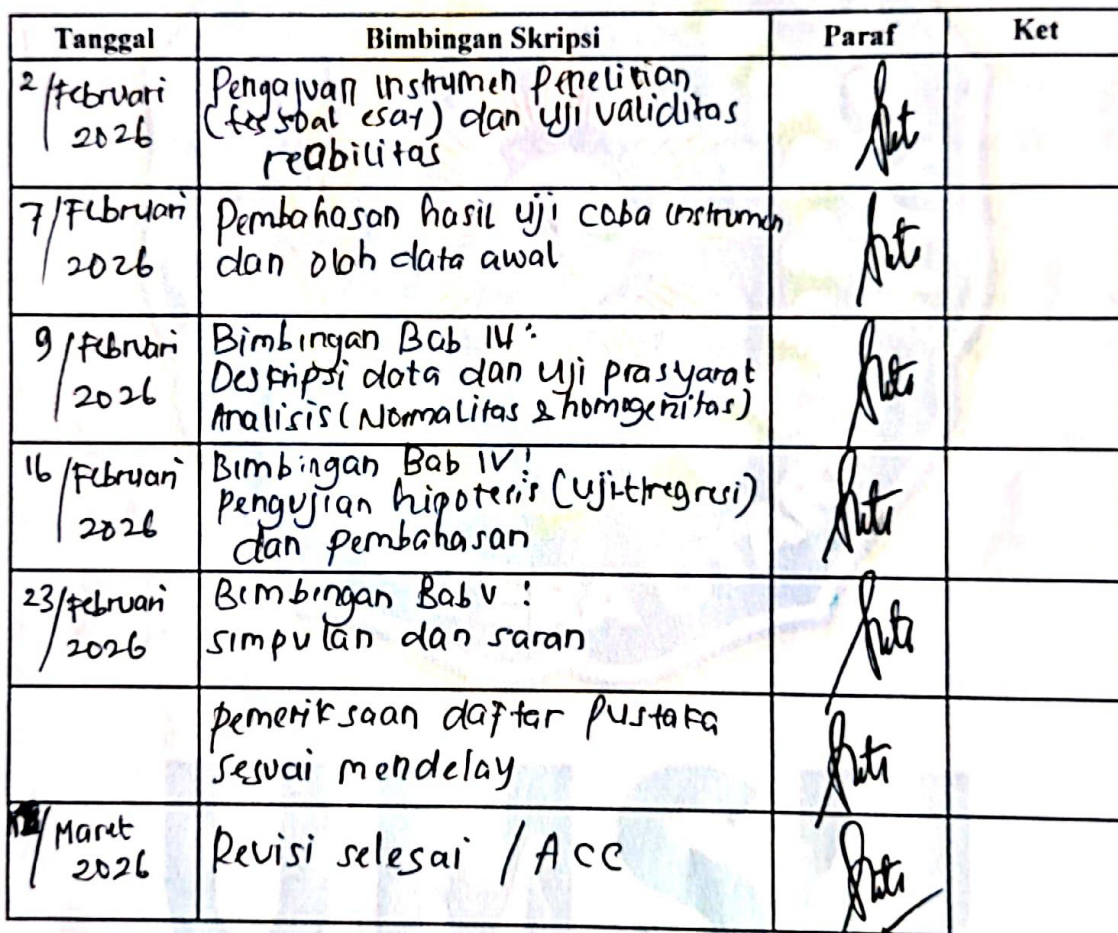 Tanggal Bimbingan Skripsi Paraf Ket
2/Februari
2026
Pengajuan instrumen penelitian
(tes soal esay) dan uji validitas
reabilitas
7/Februari
2026
Pembahasan hasil uji coba instrumen
dan olah data awal
9/Februari
2026
Bimbingan Bab IV:
Deskripsi data dan uji prasyarat
Analisis (Normalitas & homogenitas)
16/Februari
2026
Bimbingan Bab IV:
Pengujian hipotesis (uji-t/regresi)
dan pembahasan
23/Februari
2026
Bimbingan Bab V:
simpulan dan saran
pemeriksaan daftar pustaka
sesuai mendelay
/Maret
2026
Revisi selesai / ACC